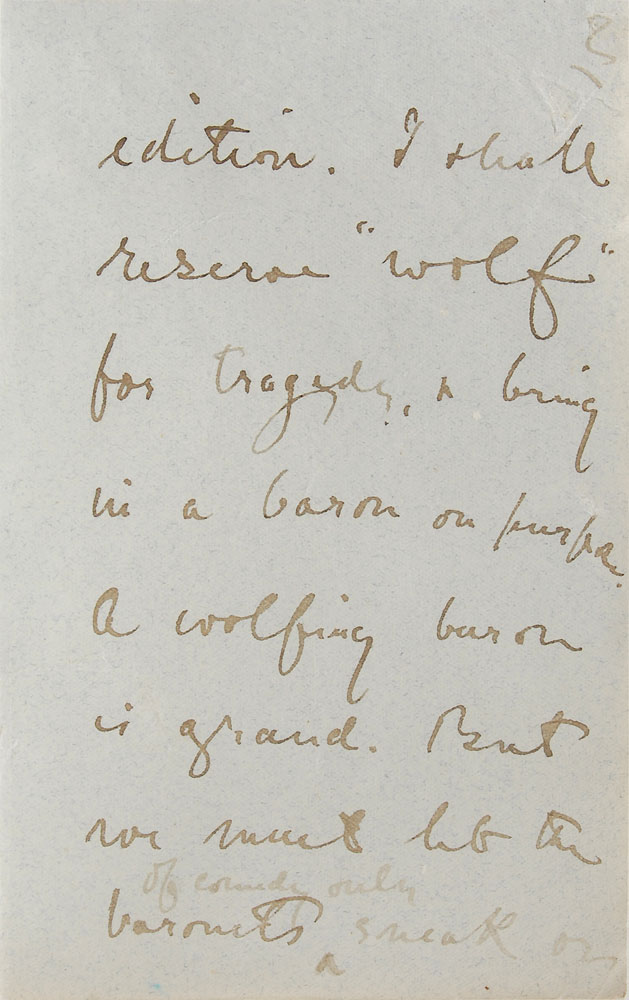 2
edition. I shall
reserve "wolf"
for tragedy, & bring
in a baron on purpose.
A wolfing baron
is grand. But
we must let the
of comedy only
baronets ^ sneak or